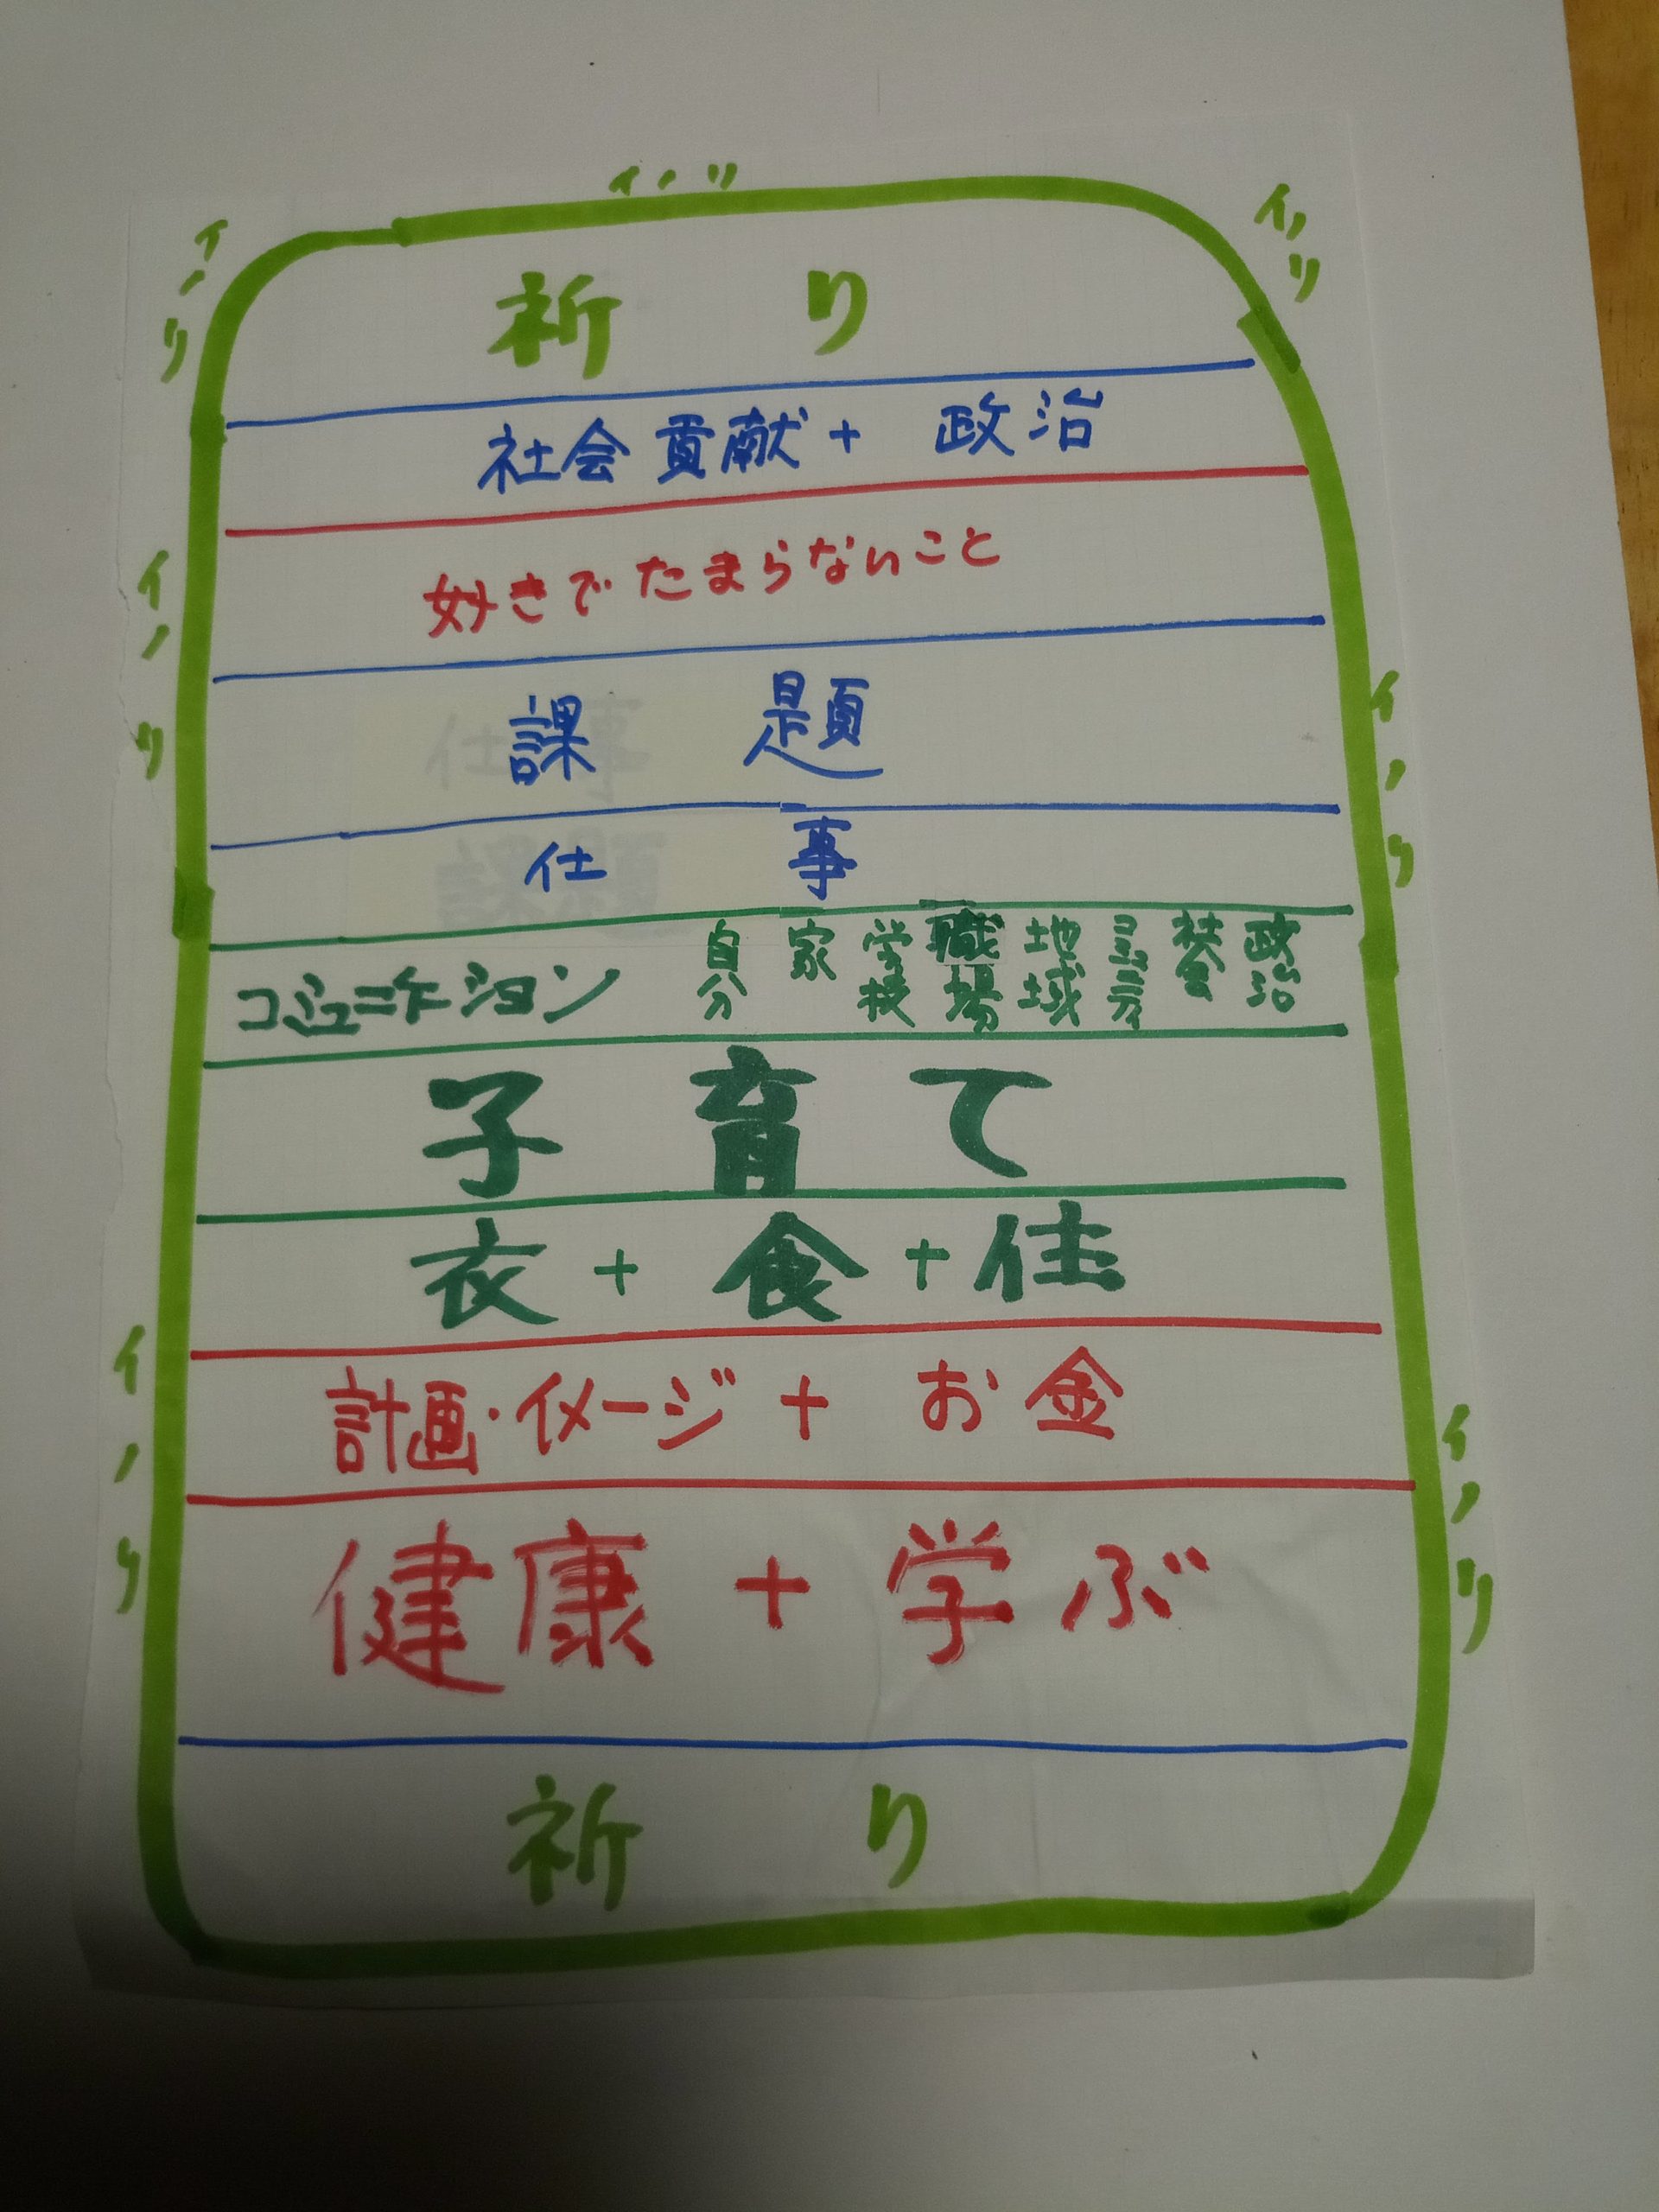 イノリ
イノリ
イノリ
祈り
社会貢献+政治
好きでたまらないこと
イノリ
課題
イノリ
仕事
コミュニケーション 自分 家 学校 職場 地域 コミュニティ 社会 政治
子育て
衣+食+住
計画・イメージ+お金
イノリ
イノリ
健康+学ぶ
祈り